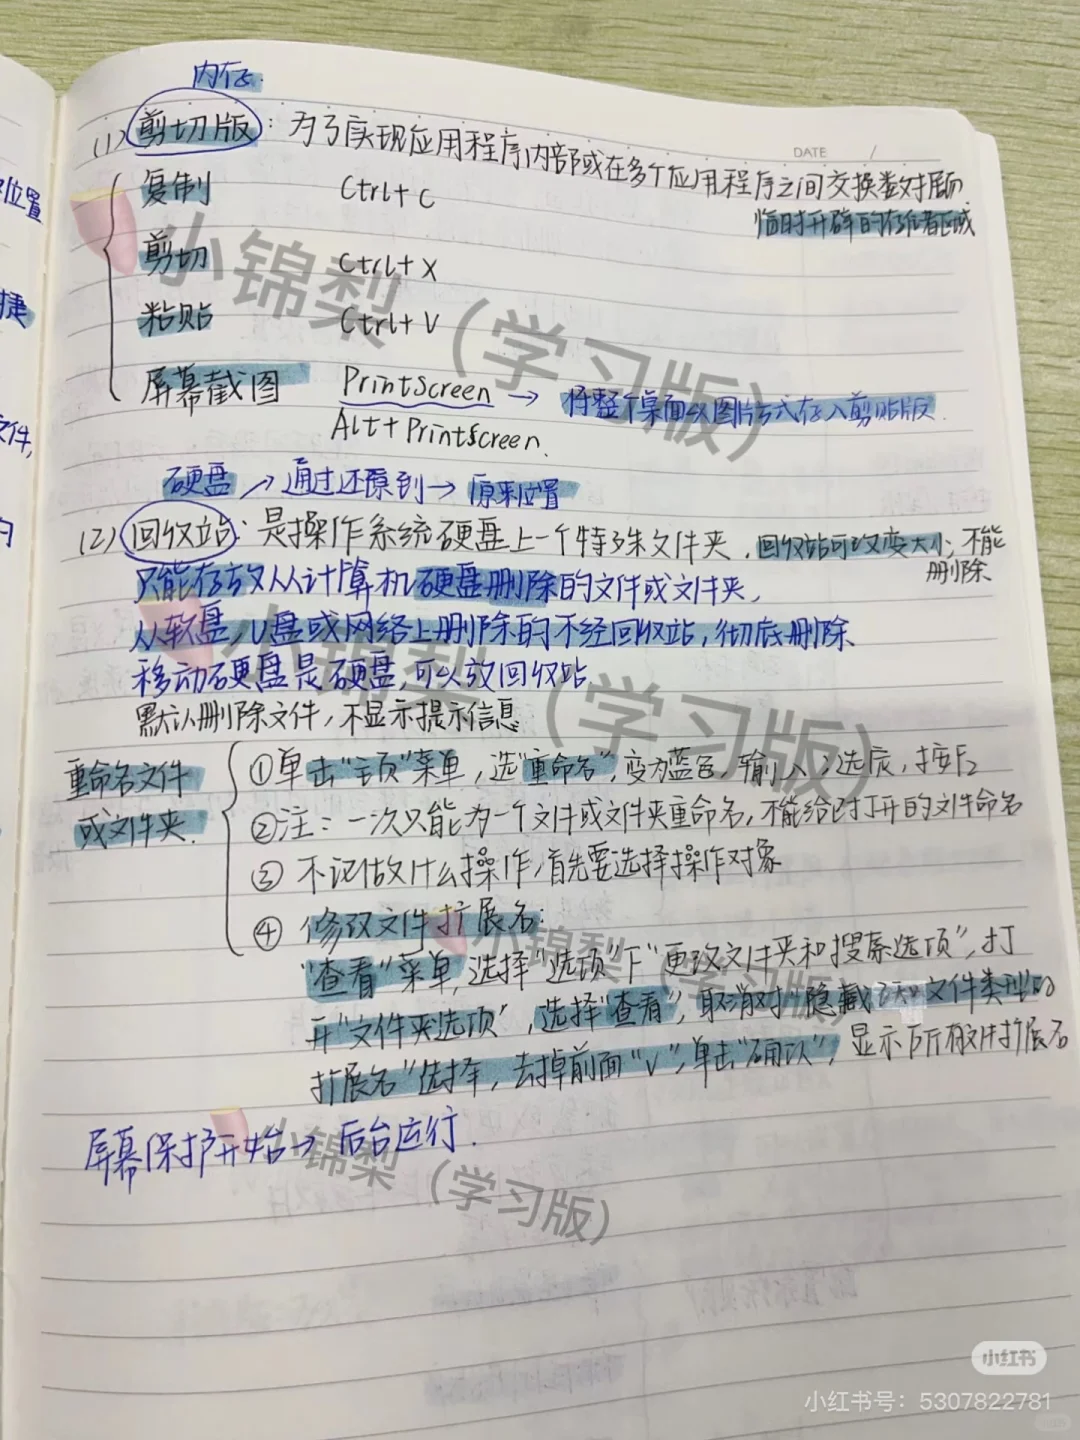 内存.
DATE /
(1) 剪切版：为了实现应用程序内部或在多个应用程序之间交换数据而
临时开辟的存储区域
复制 Ctrl+C
剪切 Ctrl+X
粘贴 Ctrl+V
屏幕截图 PrintScreen → 将整个桌面以图片方式存入剪贴版.
Alt+PrintScreen.
硬盘 → 通过还原到→ 原来位置
(2) 回收站：是操作系统硬盘上一个特殊文件夹，回收站可改变大小，不能
删除
只能存放从计算机硬盘删除的文件或文件夹，
从软盘，U盘或网络上删除的不经回收站，彻底删除
移动硬盘是硬盘，可以放回收站
默认删除文件，不显示提示信息
重命名文件
或文件夹.
①单击"主页"菜单，选"重命名"，变为蓝色，输入 选定，按F2
②注：一次只能为一个文件或文件夹重命名，不能给已打开的文件命名
③ 不论做什么操作，首先要选择操作对象
④ 修改文件扩展名：
"查看"菜单，选择"选项"下"更改文件夹和搜索选项"，打
开"文件夹选项"，选择"查看"，取消对"隐藏已知文件类型的
扩展名"选择，去掉前面"√"，单击"确认"，显示所有文件扩展名
屏幕保护开始→ 后台运行.
位置
捷
文件,
习
小锦梨（学习版）
小锦梨（学习版）
小锦梨（学习版）
小锦梨（学习版）
小红书
小红书号：5307822781